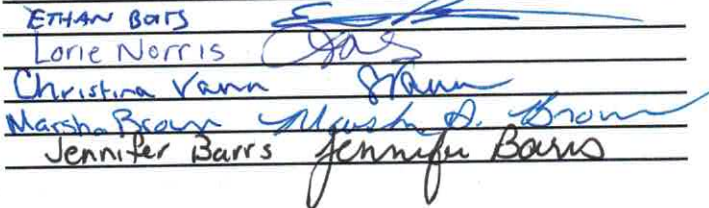 ETHAN Bars
Lorie Norris
Christina Vann
Marsha Brown Marsha A. Brown
Jennifer Barrs Jennifer Barrs